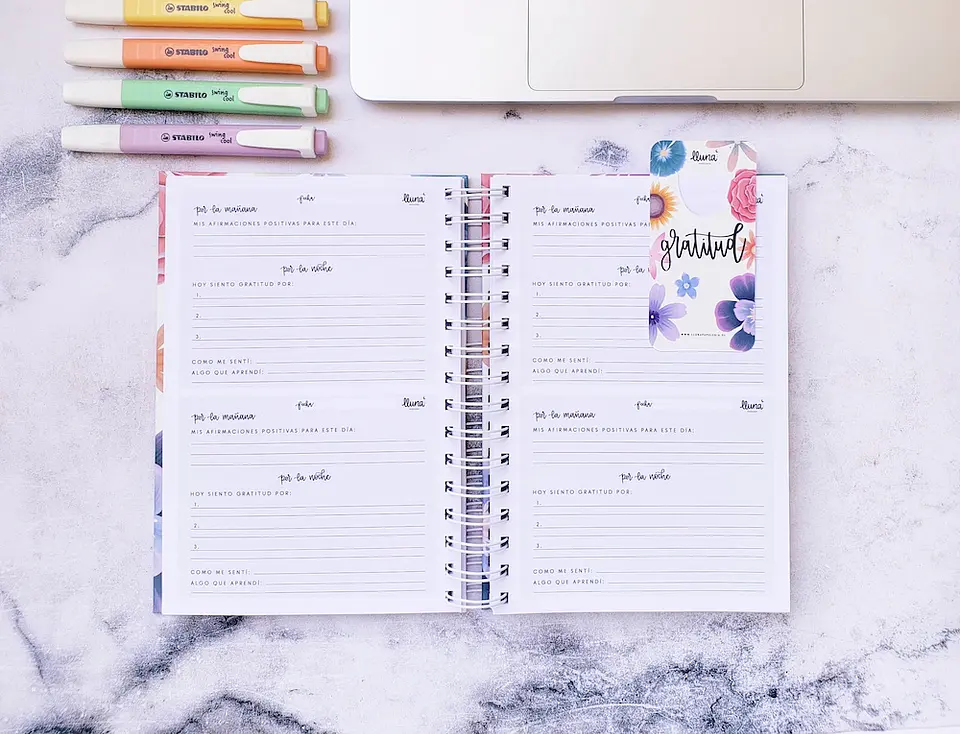 STABILO swing cool
STABILO swing cool
STABILO swing cool
STABILO swing cool
fecha
lluna
por la mañana
MIS AFIRMACIONES POSITIVAS PARA ESTE DÍA:
por la noche
HOY SIENTO GRATITUD POR:
1.
2.
3.
COMO ME SENTÍ:
ALGO QUE APRENDÍ:
fecha
lluna
por la mañana
MIS AFIRMACIONES POSITIVAS PARA ESTE DÍA:
por la noche
HOY SIENTO GRATITUD POR:
1.
2.
3.
COMO ME SENTÍ:
ALGO QUE APRENDÍ:
por la mañana
MIS AFIRMACIONES POSITIVAS P
por la
HOY SIENTO GRATITUD POR:
1.
2.
3.
COMO ME SENTÍ:
ALGO QUE APRENDÍ:
lluna
gratitud
fecha
lluna
por la mañana
MIS AFIRMACIONES POSITIVAS PARA ESTE DÍA:
por la noche
HOY SIENTO GRATITUD POR:
1.
2.
3.
COMO ME SENTÍ:
ALGO QUE APRENDÍ: